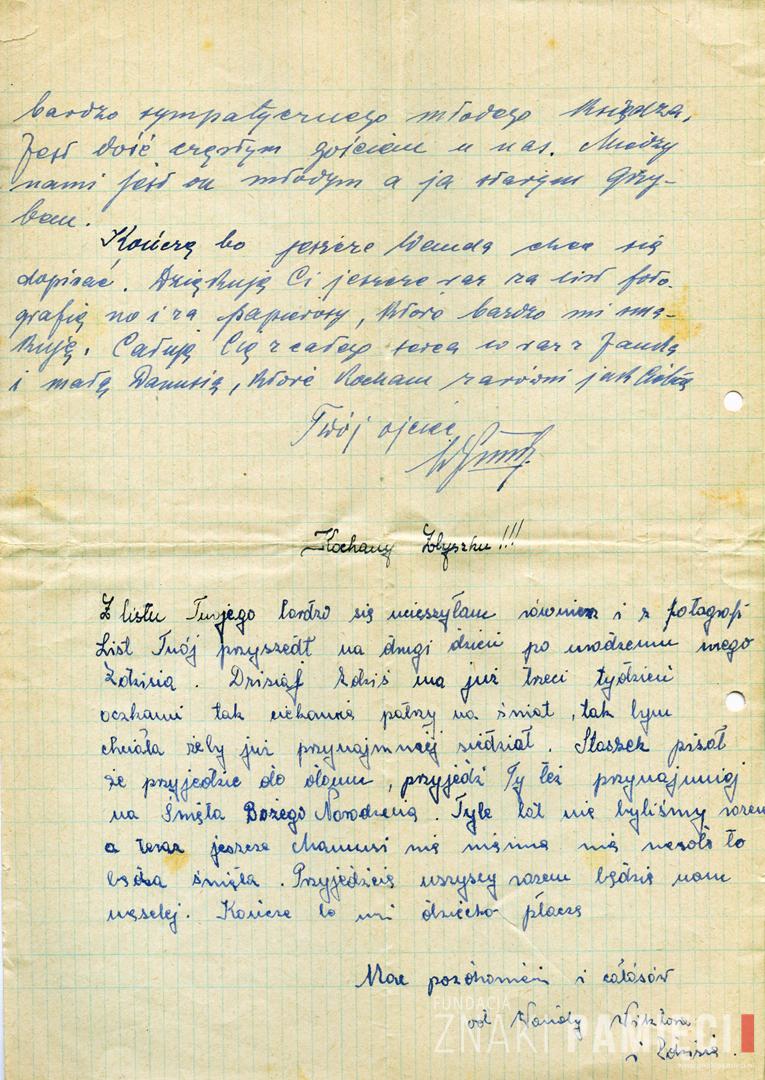 bardzo sympatycznego młodego księdza.
Jest dość częstym gościem u nas. Między
nami jest on młodym a ja starym grzy-
bem.
Kończę bo jeszcze Wanda chce się
dopisać. Dziękuję Ci jeszcze raz za list foto-
grafię no i za papierosy, które bardzo mi sma-
kują. Całuję Cię z całego serca wraz z Jandą
i małą Danusią, które kocham zarówni jak Ciebie
Twój ojciec
Kochany Zbyszku!!!
Z listu Twojego bardzo się ucieszyłam również i z fotografi
List Twój przyszedł na drugi dzień po urodzeniu mego
Zdzisia. Dzisiaj Zdziś ma już trzeci tydzień
oczkami tak ciekawie patrzy na świat, tak bym
chciała żeby już przynajmniej siedział. Staszek pisał
że przyjedzie do domu, przyjedź Ty też przynajmniej
na Święta Bożego Narodzenia. Tyle lat nie byliśmy razem
a teraz jeszcze Mamusi nie ma nie wesołe to
będą święta. Przyjedźcie wszyscy razem będzie nam
weselej. Kończe bo mi dziecko płacze
Moc pozdrowień i całusów
od Wandy Wiktora
i Zdzisia.
FUNDACJA
ZNAKI PAMIĘCI